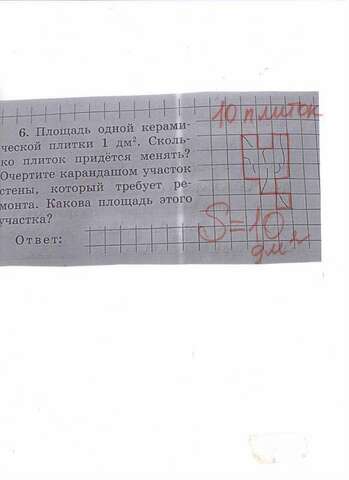 10 плиток
6. Площадь одной керами-
ческой плитки 1 дм². Сколь-
ко плиток придётся менять?
Очертите карандашом участок
стены, который требует ре-
монта. Какова площадь этого
участка?
Ответ:
S=10
дм²